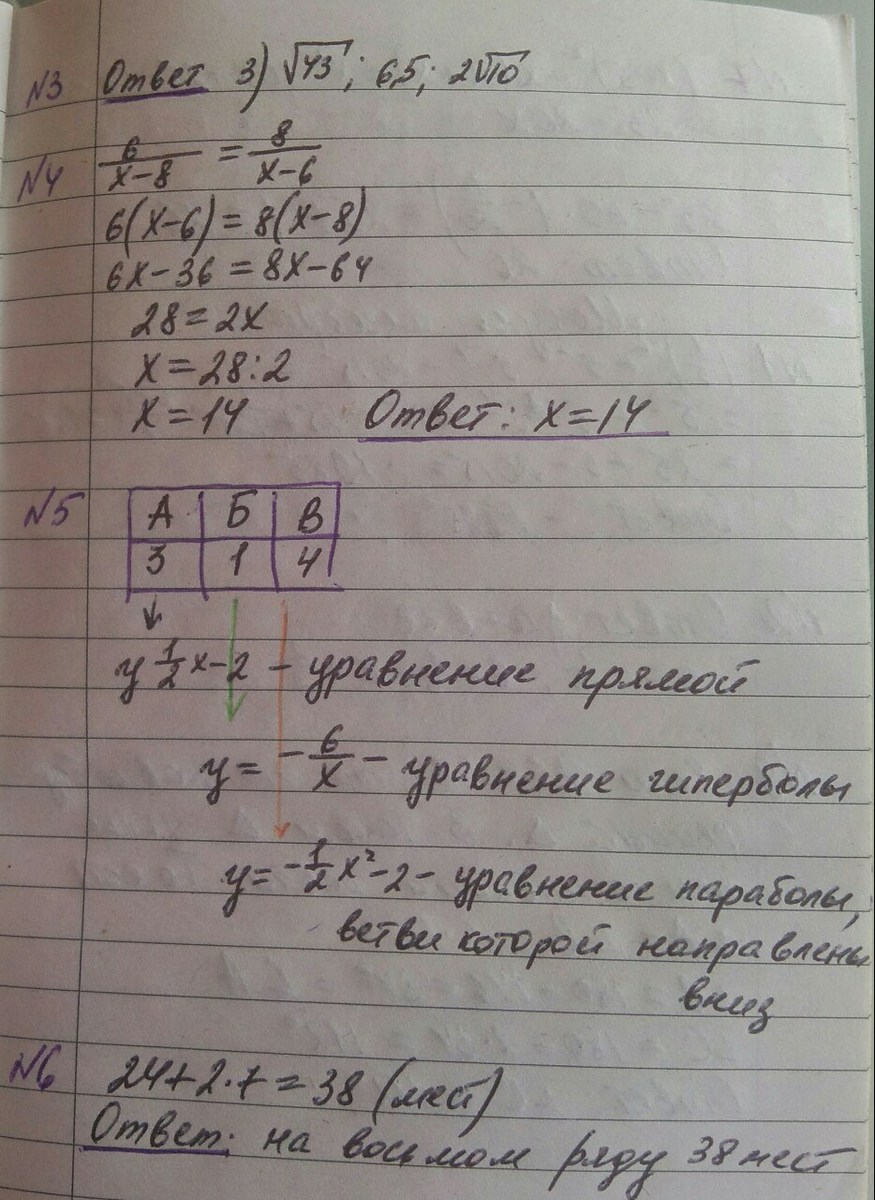 N3 Ответ 3) √43; 6,5; 2√10
N4 6/(x-8) = 8/(x-6)
6(x-6) = 8(x-8)
6x-36 = 8x-64
28 = 2x
x = 28:2
x = 14 Ответ: x = 14
N5 А Б В
3 1 4
y 1/2 x-2 - уравнение прямой
y = - 6/x - уравнение гиперболы
y = -1/2 x² - 2 - уравнение параболы,
ветви которой направлены
вниз
N6 24+2·7 = 38 (мест)
Ответ: на восьмом ряду 38 мест